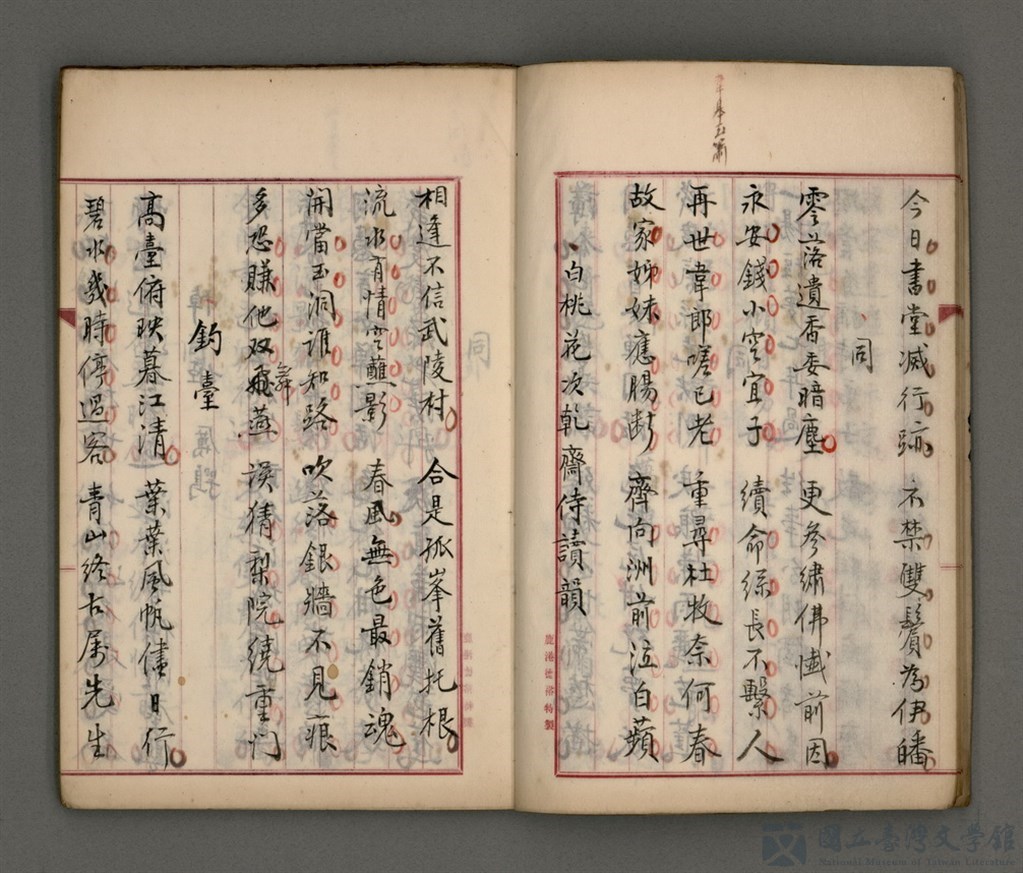 今日書堂減行跡　不禁雙鬢為伊皤
同
零落遺香委暗塵　更參繡佛懺前因
永安錢小空宜子　續命絲長不繫人
再世韋郎嗟已老　重尋杜牧奈何春
故家姊妹應腸斷　齊向洲前泣白蘋
白桃花次乾齋侍讀韻
相逢不信武陵村　合是孤峯舊托根
流水有情空蘸影　春風無色最銷魂
開當玉洞誰知路　吹落銀牆不見痕
多恐賺他双飛燕　誤猜梨院繞重门
舞
釣臺
高臺俯映暮江清　葉葉風帆儘日行
碧水幾時停過客　青山終古屬先生
鹿港德裕特製
國立臺灣文學館
National Museum of Taiwan Literature